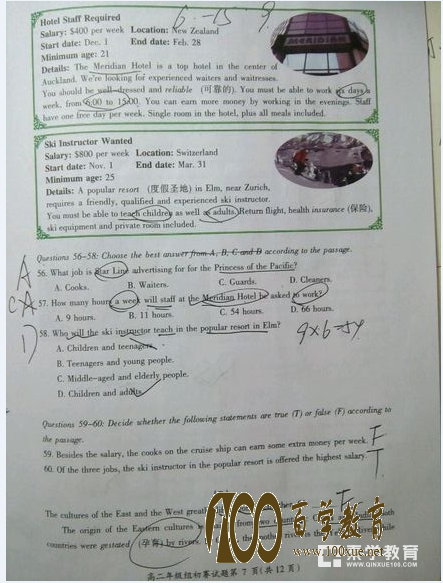 6 - 15 9
Hotel Staff Required
Salary: $400 per week Location: New Zealand
Start date: Dec. 1 End date: Feb. 28
Minimum age: 21
MERIDIEN
Details: The Meridian Hotel is a top hotel in the center of
Auckland. We're looking for experienced waiters and waitresses.
You should be well-dressed and reliable (可靠的). You must be able to work six days a
week, from 6:00 to 15:00. You can earn more money by working in the evenings. Staff
have one free day per week. Single room in the hotel, plus all meals included.
Ski Instructor Wanted
Salary: $800 per week Location: Switzerland
Start date: Nov. 1 End date: Mar. 31
Minimum age: 25
Details: A popular resort (度假圣地) in Elm, near Zurich,
requires a friendly, qualified and experienced ski instructor.
You must be able to teach children as well as adults. Return flight, health insurance (保险),
ski equipment and private room included.
Questions 56-58: Choose the best answer from A, B, C and D according to the passage.
A
56. What job is Star Line advertising for for the Princess of the Pacific?
A. Cooks. B. Waiters. C. Guards. D. Cleaners.
C A
57. How many hours a week will staff at the Meridian Hotel be asked to work?
A. 9 hours. B. 11 hours. C. 54 hours. D. 66 hours.
D
58. Who will the ski instructor teach in the popular resort in Elm?
9×6=54
A. Children and teenagers.
B. Teenagers and young people.
C. Middle-aged and elderly people.
D. Children and adults.
Questions 59-60: Decide whether the following statements are true (T) or false (F) according to
the passage.
59. Besides the salary, the cooks on the cruise ship can earn some extra money per week. F
60. Of the three jobs, the ski instructor in the popular resort is offered the highest salary. T
The cultures of the East and the West
The origin of the Eastern cultures from two
countries were gestated (孕育) by rivers. mother
高二年级组初赛试题第 7 页(共 12 页)
100百学教育
www.100xue.net
亲学教育
WWW.QINXUE100.COM